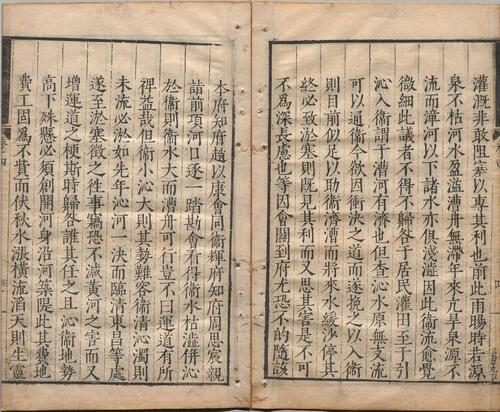 灌溉非敢阻泰以專其利也前此雨暘時若源
泉不枯河水盈溢漕舟無滯年來亢旱泉源不
流而漳河以下諸水亦俱淺澀因此衛流愈覺
微細此議者不得不歸咎于居民灌田至于引
沁入衛謂于漕河有濟也但查沁水原無支流
可以通衛今欲因衝決之道而遂挽之以入衛
則目前似足以助衛濟漕而將來水緩沙停其
終必致淤塞則既見其利而又思其害是不可
不為深長慮也等因會關到府尤恐不的隨該
本府知府趙以康會同衛輝府知府周思宸親
詣前項河口逐一踏勘會看得衛水枯澁併沁
於衛則衛水大而漕舟可行豈不曰運道有所
裨益哉但衛小沁大則其勢難容衛清沁濁則
未流必淤如先年沁河一決而踰清東昌等處
遂至淤塞徵之往事竊恐不減黃河之害而又
增運道之梗斯時歸咎誰其任之且沁衛地勢
高下殊懸必須創開河身沿河築隄此其殫地
費工固為不貲而伏秋水漲橫流滔天則生靈